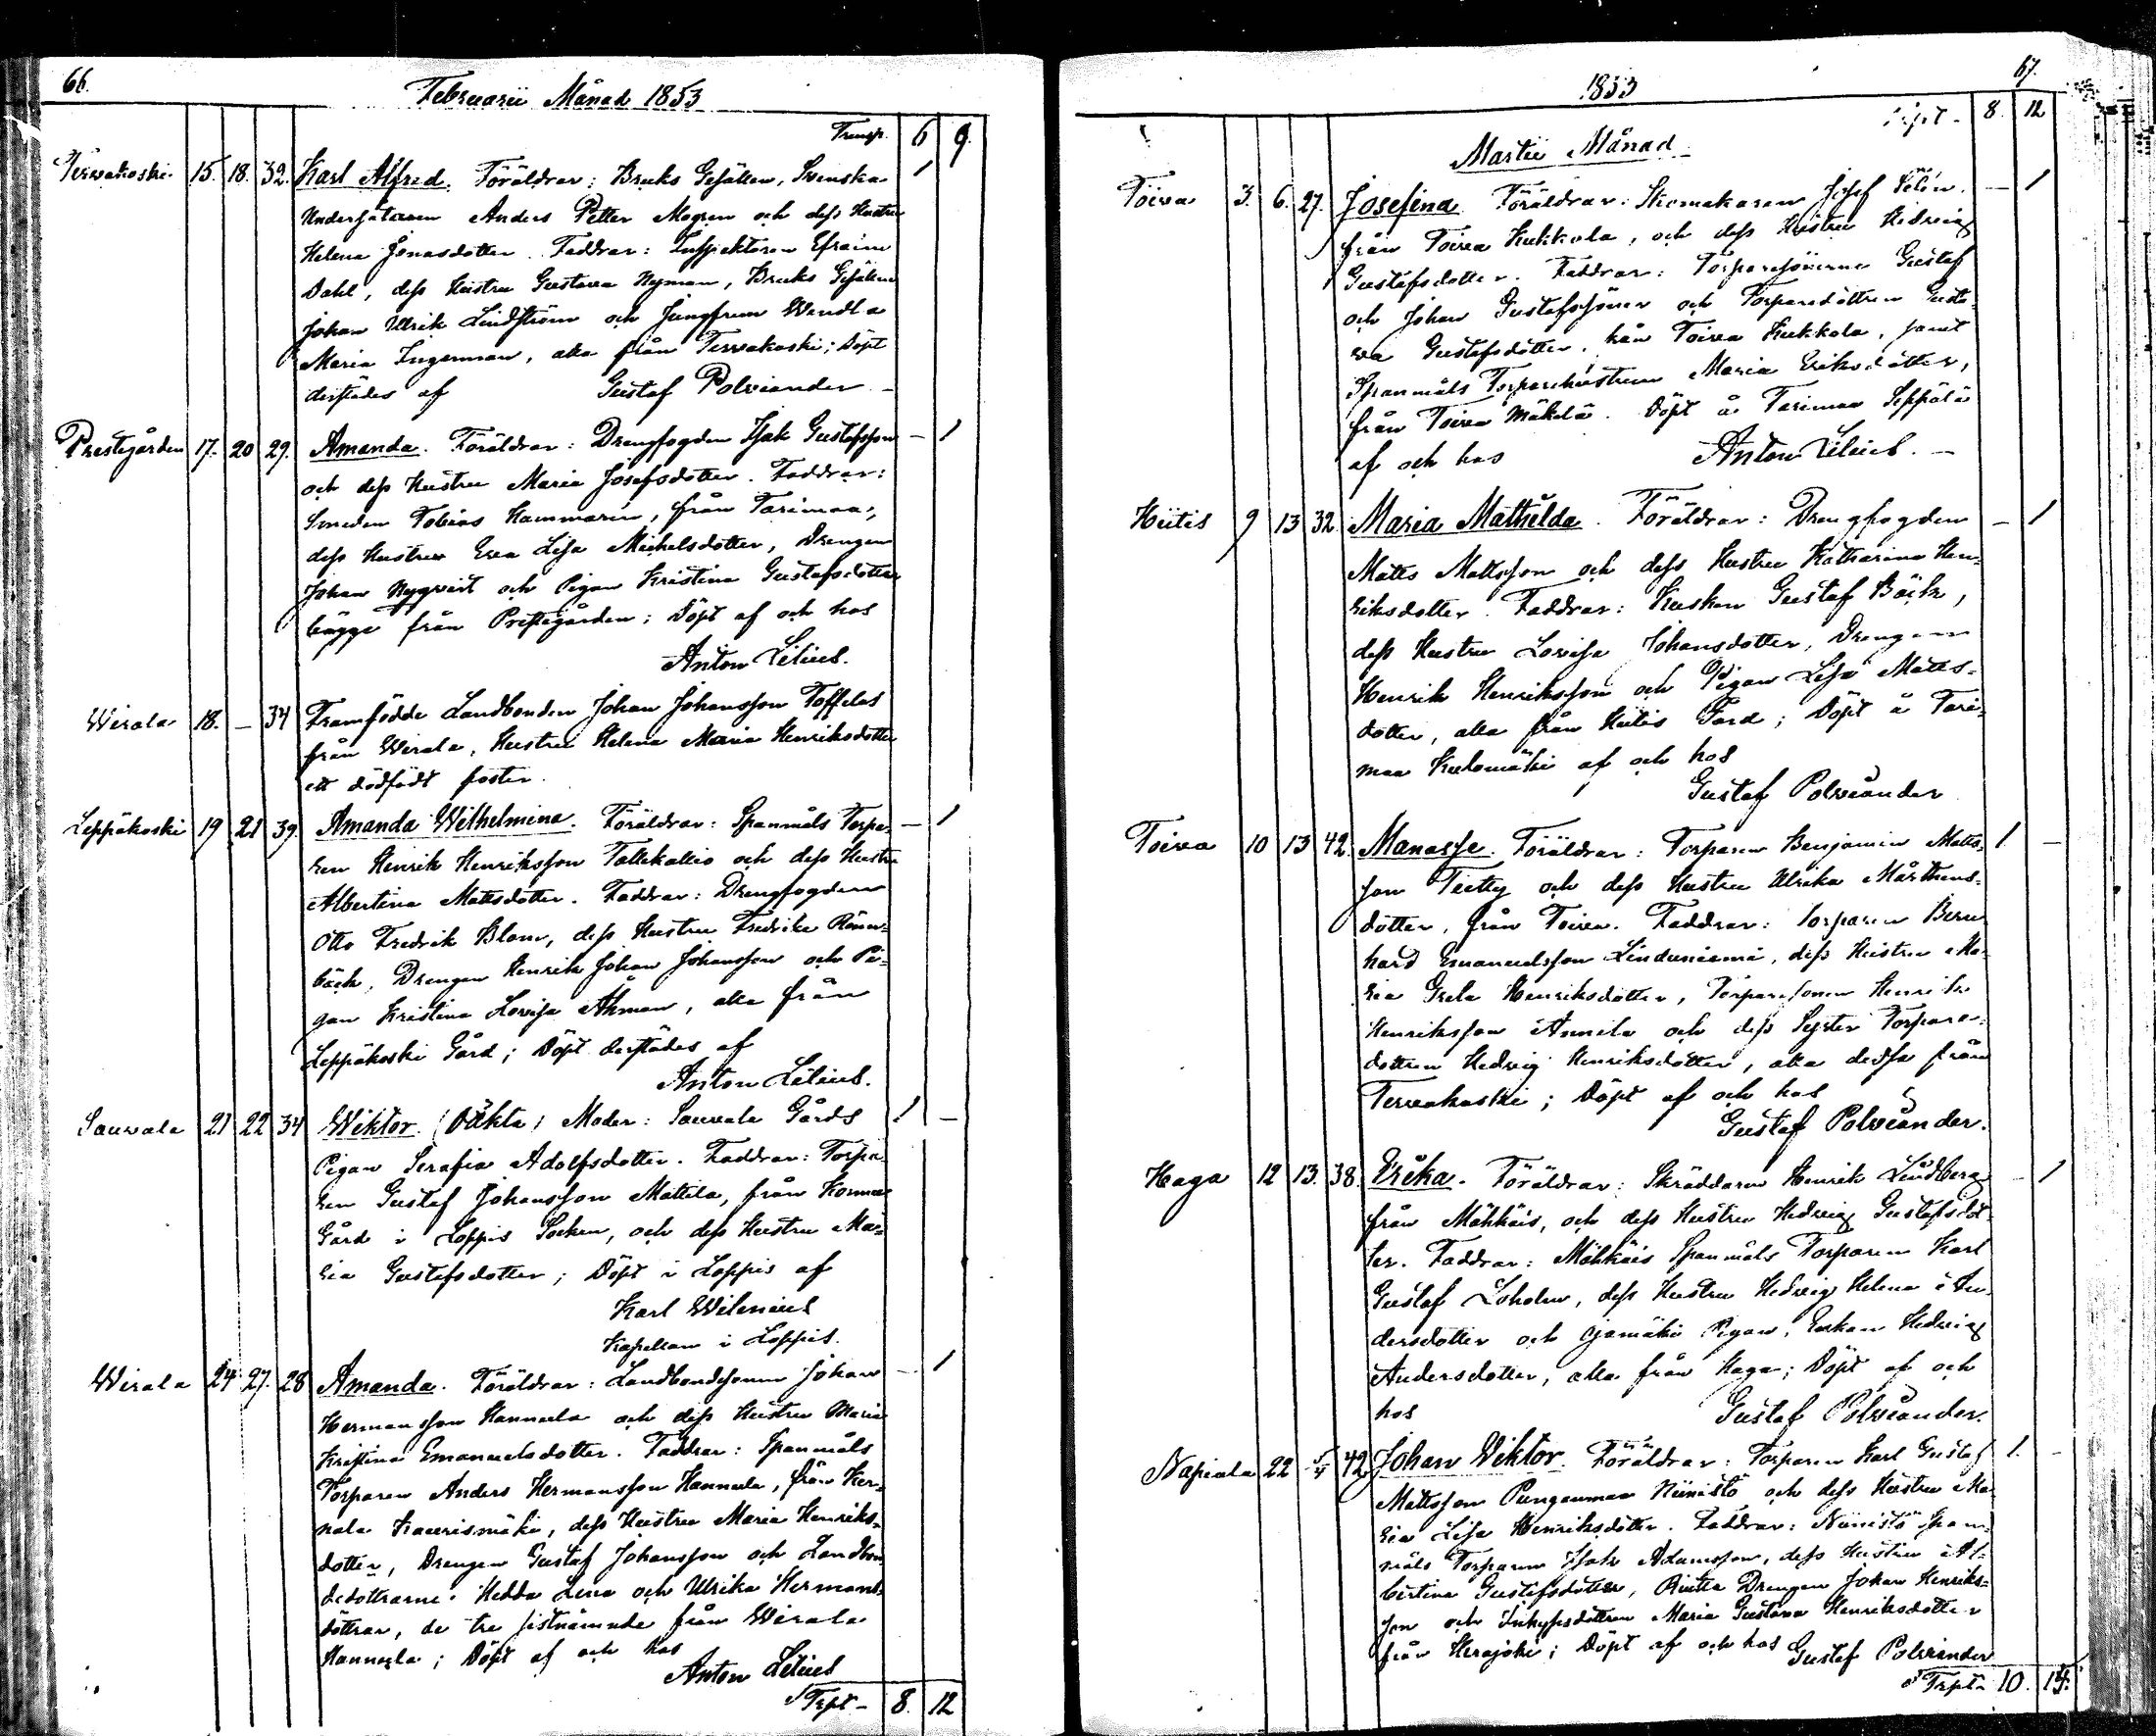 66.
Februarii Månad 1853
Transp. 6 9.
Terwakoski 15. 18. 32. Karl Alfred. Föräldrar: Bruks Gesällen, Svenska 1
Undersåtaren Anders Petter Mogren och dess Hustru
Helena Jonasdotter. Faddrar: Inspektoren Efraim
Dahl, dess Hustru Gustava Nyman, Bruks Gesällen
Johan Ulrik Lindström och Jungfrun Wendla
Maria Ingerman, alla från Terwakoski; Döpt
derstädes af Gustaf Polviander –
Prestegården 17. 20 29. Amanda. Föräldrar: Drengfogden Isak Gustafsson – 1
och dess Hustru Maria Josefsdotter. Faddrar:
Smeden Tobias Hammarin, från Tarimaa,
dess Hustru Eva Lisa Michelsdotter, Drengen
Johan Nyqvist och Pigan Kristina Gustafsdotter
bägge från Prestegården; Döpt af och hos
Anton Lilius.
Wirala 18. – 34 Framfödde Landbonden Johan Johansson Toffelas
från Wirala, Hustru Helena Maria Henriksdotter
ett dödfödt foster.
Leppäkoski 19 21 39. Amanda Wilhelmina. Föräldrar: Spanmåls Torpa- – 1
ren Henrik Henriksson Tallikallio och dess Hustru
Albertina Mattsdotter. Faddrar: Drengfogden
Otto Fredrik Blom, dess Hustru Fredrika Rönn-
bäck, Drengen Henrik Johan Johansson och Pi-
gan Kristina Lovisa Åkman, alla från
Leppäkoski Gård; Döpt derstädes af
Anton Lilius.
Sauvala 21 22 34 Wiktor. (Oäkta) Moder: Sauvala Gårds 1 –
Pigan Serafia Adolfsdotter. Faddrar: Torpa-
ren Gustaf Johansson Mattila, från
Gård i Loppis Socken, och dess Hustru Ma-
ria Gustafsdotter; Döpt i Loppis af
Karl Wilenius
Kapellan i Loppis.
Wirala 24 27. 28 Amanda. Föräldrar: Landbondesonen Johan – 1
Hermansson Hannula och dess Hustru Maria
Kristina Emanuelsdotter. Faddrar: Spanmåls
Torparen Anders Hermansson Hannula, från Ker-
nala Kaurismäki, dess Hustru Maria Henriks-
dotter, Drengen Gustaf Johansson och Landbon-
dedottrarne Hedda Lena och Ulrika Hermans-
döttrar, de tre sistnämnde från Wirala
Hannula; Döpt af och hos
Anton Lilius
Trpt – 8. 12
67.
1853
Trspt – 8. 12
Martii Månad
Toivea 3. 6. 27. Josefina. Föräldrar: Skomakaren Josef Selin. – 1
från Toivea Kukkola, och dess Hustru Hedvig
Gustafsdotter. Faddrar: Torparesönerne Gustaf
och Johan Gustafssöner och Torparedottren Gusta-
va Gustafsdotter, från Toivea Kukkola, samt
Spanmåls Torparehustrun Maria Eriksdotter,
från Toivea Mäkelä. Döpt å Tarimaa Seppälä
af och hos Anton Lilius. –
Hiitis 9 13 32. Maria Mathilda. Föräldrar: Drengfogden – 1
Matts Mattsson och dess Hustru Katharina Hen-
riksdotter. Faddrar: Kusken Gustaf Bäck,
dess Hustru Lovisa Johansdotter, Drengen
Henrik Henriksson och Pigan Lisa Matts-
dotter, alla från Hiitis Gård; Döpt å Tari-
maa Kulomäki af och hos
Gustaf Polviander
Toivea 10 13 42. Manasse. Föräldrar: Torparen Benjamin Matts- 1 –
son Tietty och dess Hustru Ulrika Mårthens-
dotter, från Toivea. Faddrar: Torparen Bern-
hard Emanuelsson Linduniemi, dess Hustru Ma-
ria Greta Henriksdotter, Torparesonen Henrik
Henriksson Annila och dess Syster Torpare-
dottren Hedvig Henriksdotter, alla dessa från
Terwakoski; Döpt af och hos
Gustaf Polviander.
Haga 12 13. 38. Erika. Föräldrar: Skräddaren Henrik Lindberg – 1
från Mähkäis, och dess Hustru Hedvig Gustafsdot-
ter. Faddrar: Mähkäis Spanmåls Torparen Karl
Gustaf Löholm, dess Hustru Hedvig Helena An-
dersdotter och Ojamäki Pigan, Enkan Hedvig
Andersdotter, alla från Haga; Döpt af och
hos Gustaf Polviander.
Napiala 22 5/4 42 Johan Wiktor. Föräldrar: Torparen Karl Gustaf 1. –
Mattsson Punganmaa Niinistö och dess Hustru Ma-
ria Lisa Henriksdotter. Faddrar: Niinistö Span-
måls Torparen Isak Adamsson, dess Hustru Al-
bertina Gustafsdotter, Drengen Johan Henriks-
son och Inhysdottren Maria Gustava Henriksdotter
från Herajoki; Döpt af och hos Gustaf Polviander
Trpt – 10. 14.